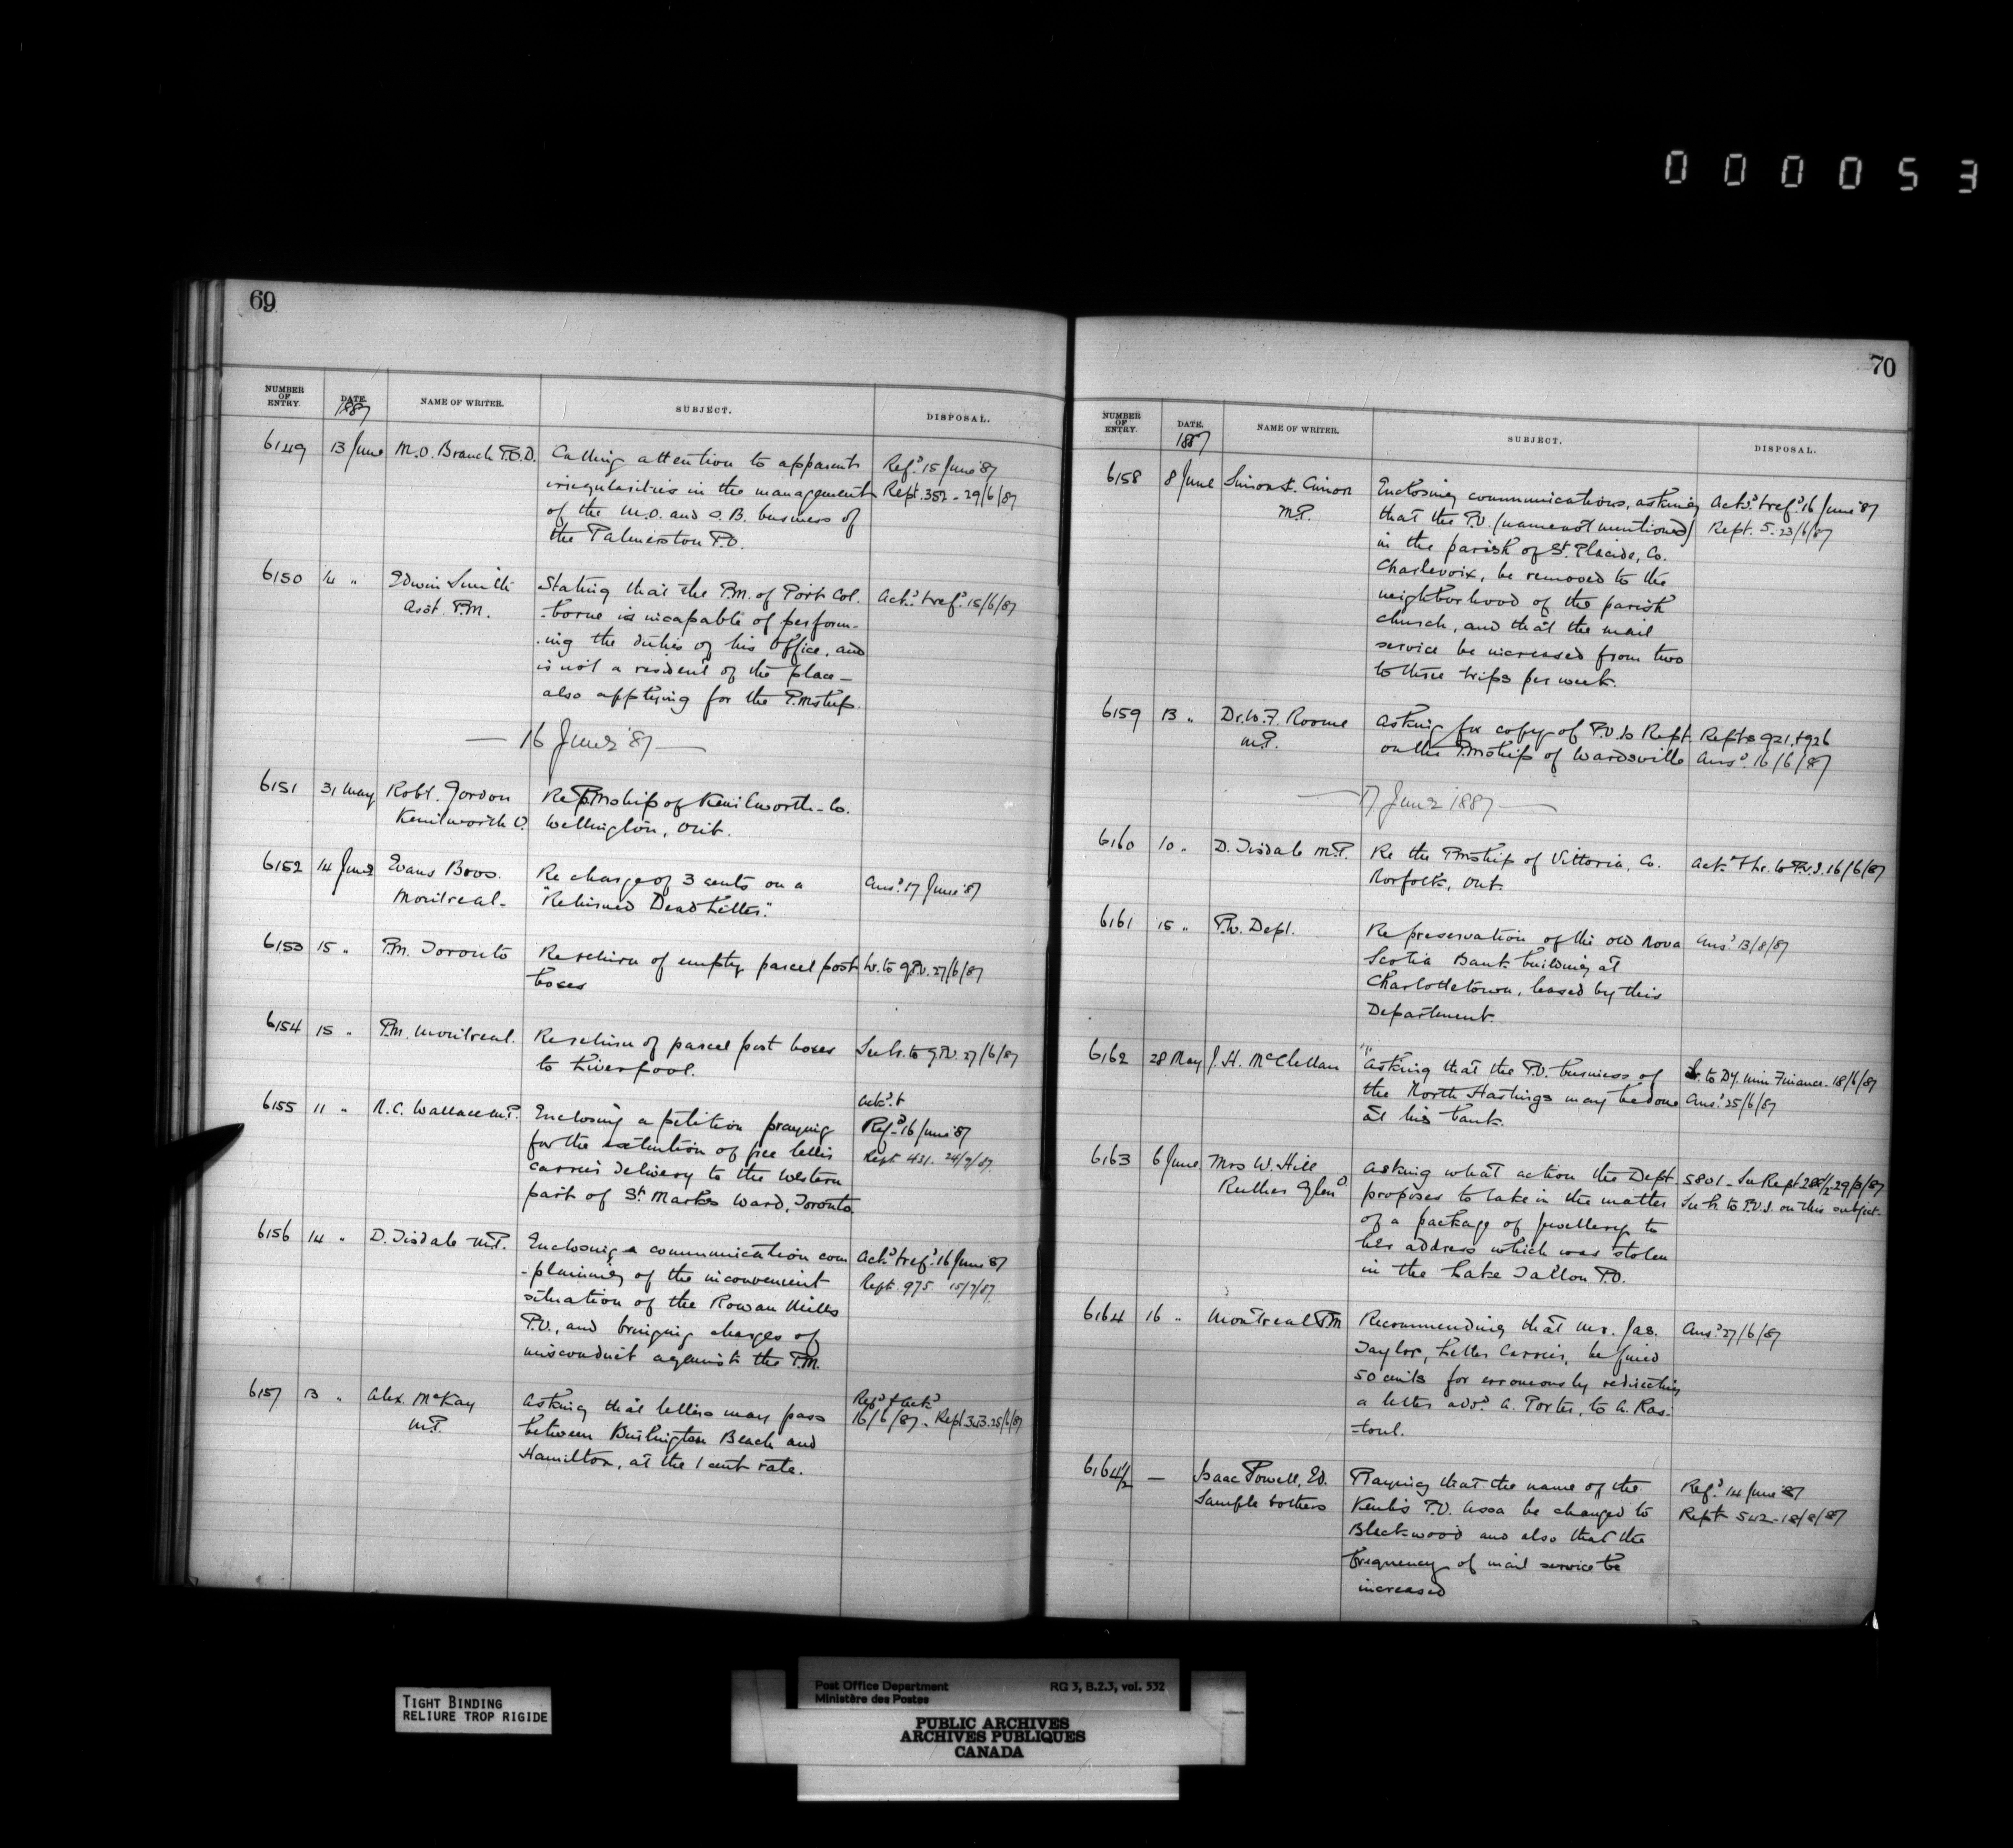 000053
69
NUMBER OF ENTRY. DATE. 1887 NAME OF WRITER. SUBJECT. DISPOSAL.
6149 13 June M.O. Branch P.O.D. Calling attention to apparent Ref.d 15 June '87
irregularities in the management Rept. 352 - 29/6/87
of the M.O. and S.B. business of
the Palmerston P.O.
6150 14 " Edwin Smith Stating that the P.M. of Port Col. Ack.d & ref.d 15/6/87
Asst. P.M. -borne is incapable of perform-
-ing the duties of his office, and
is not a resident of the place -
also applying for the P.Mship.
— 16 June '87 —
6151 31 May Robt. Gordon Re P.Mship of Kenilworth - Co.
Kenilworth O. Wellington, Ont.
6152 14 June Evans Bros. Re charge of 3 cents on a Ans.d 17 June '87
Montreal - "Returned Dead Letter."
6153 15 " P.M. Toronto Re return of empty parcel post Lr. to G.P.O. 27/6/87
boxes
6154 15 " P.M. Montreal. Re return of parcel post boxes See lr. to G.P.O. 27/6/87
to Liverpool.
6155 11 " N.C. Wallace M.P. Enclosing a petition praying Ack.d &
for the extention of free letter Ref.d 16 June '87
carrier delivery to the Western Rept 431. 24/9/87
part of St. Marks Ward, Toronto.
6156 14 " D. Tisdale M.P. Enclosing a communication com Ack.d & ref.d 16 June '87
-plaining of the inconvenient Rept. 975. 15/7/87
situation of the Rowan Mills
P.O., and bringing charges of
misconduct against the P.M.
6157 13 " Alex. McKay Asking that letters may pass Ref.d & Ack.d
M.P. between Burlington Beach and 16/6/87 - Rept 25/6/87
Hamilton, at the 1 cent rate.
70
NUMBER OF ENTRY. DATE. 1887 NAME OF WRITER. SUBJECT. DISPOSAL.
6158 8 June Simon X. Cimon Enclosing communications, asking Ack.d & ref.d 16 June '87
M.P. that the P.O. (name not mentioned) Rept. 5. 23/6/87
in the parish of St. Placide, Co.
Charlevoix, be removed to the
neighborhood of the parish
church, and that the mail
service be increased from two
to three trips per week.
6159 13 " Dr. W.F. Roome Asking for copy of P.O. Is Rept. Repts 921 & 926
M.P. on the P.Mship of Wardsville Ans.d 16/6/87
— 17 June 1887 —
6160 10 " D. Tisdale M.P. Re the P.Mship of Vittoria, Co. Ack.d & lr. to P.O.I. 16/6/87
Norfolk, Ont.
6161 15 " P.W. Dept. Re preservation of the old Nova Ans.d 13/8/87
Scotia Bank building at
Charlottetown, leased by this
Department.
6162 28 May J. H. McClellan Asking that the P.O. business of Lr. to Dy. Min. Finance. 18/6/87
the North Hastings may be done Ans.d 25/6/87
at his bank.
6163 6 June Mrs W. Hill Asking what action the Dept 5801 - See Rept 29/3/87
Ruther Glen O. proposes to take in the matter See lr. to P.O.I. on this subject.
of a package of jewellery to
her address which was stolen
in the Lake Tallon P.O.
6164 16 " Montreal P.M. Recommending that Mr. Jas. Ans.d 27/6/87
Taylor, Letter Carrier, be fined
50 cents for erroneously redirecting
a letter add.d A. Porter, to A. Ras-
-toul.
6164½ — Isaac Powell, Ed. Praying that the name of the Ref.d 14 June '87
Sample & others P.O. Assa be changed to Rept 542 - 18/8/87
Blackwood and also that the
frequency of mail service be
increased
TIGHT BINDING
RELIURE TROP RIGIDE
Post Office Department RG 3, B.2.3, vol. 532
Ministère des Postes
PUBLIC ARCHIVES
ARCHIVES PUBLIQUES
CANADA